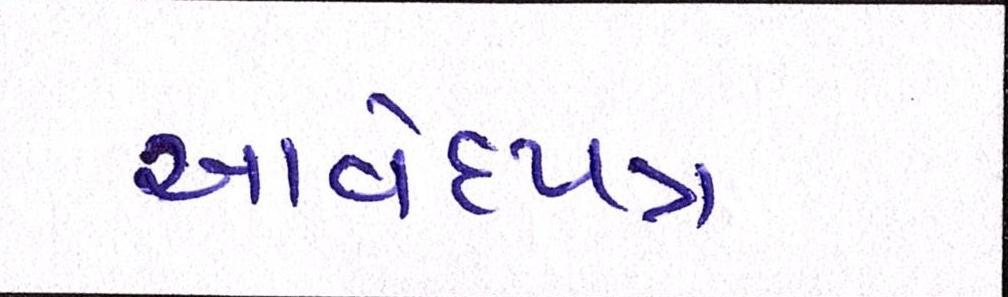 આવેદપત્ર